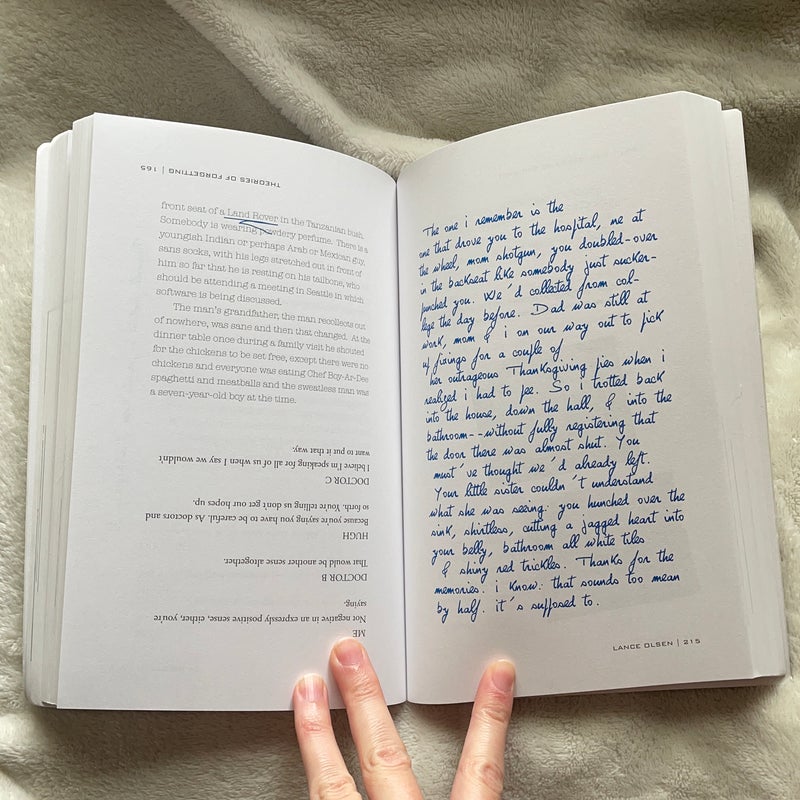 front seat of a Land Rover in the Tanzanian bush.
Somebody is wearing powdery perfume. There is a
youngish Indian or perhaps Arab or Mexican guy,
sans socks, with his legs stretched out in front of
him so far that he is resting on his tailbone, who
should be attending a meeting in Seattle in which
software is being discussed.
The man's grandfather, the man recollects out
of nowhere, was sane and then that changed. At the
dinner table once during a family visit he shouted
for the chickens to be set free, except there were no
chickens and everyone was eating Chef Boy-Ar-Dee
spaghetti and meatballs and the sweatless man was
a seven-year-old boy at the time.
ME
Not negative in an expressly positive sense, either, you're
saying.
DOCTOR B
That would be another sense altogether.
HUGH
Because you're saying you have to be careful. As doctors and
so forth. You're telling us don't get our hopes up.
DOCTOR C
I believe I'm speaking for all of us when I say we wouldn't
want to put it that way.
THEORIES OF FORGETTING | 165
The one i remember is the
one that drove you to the hospital, me at
the wheel, mom shotgun, you doubled-over
in the backseat like somebody just sucker-
punched you. We'd collected from col-
lege the day before. Dad was still at
work, mom & i on our way out to pick
up fixings for a couple of
her outrageous Thanksgiving pies when i
realized i had to pee. So i trotted back
into the house, down the hall, & into the
bathroom--without fully registering that
the door there was almost shut. You
must've thought we'd already left.
Your little sister couldn't understand
what she was seeing: you hunched over the
sink, shirtless, cutting a jagged heart into
your belly, bathroom all white tiles
& shiny red trickles. Thanks for the
memories. i know: that sounds too mean
by half. it's supposed to.
LANCE OLSEN | 215